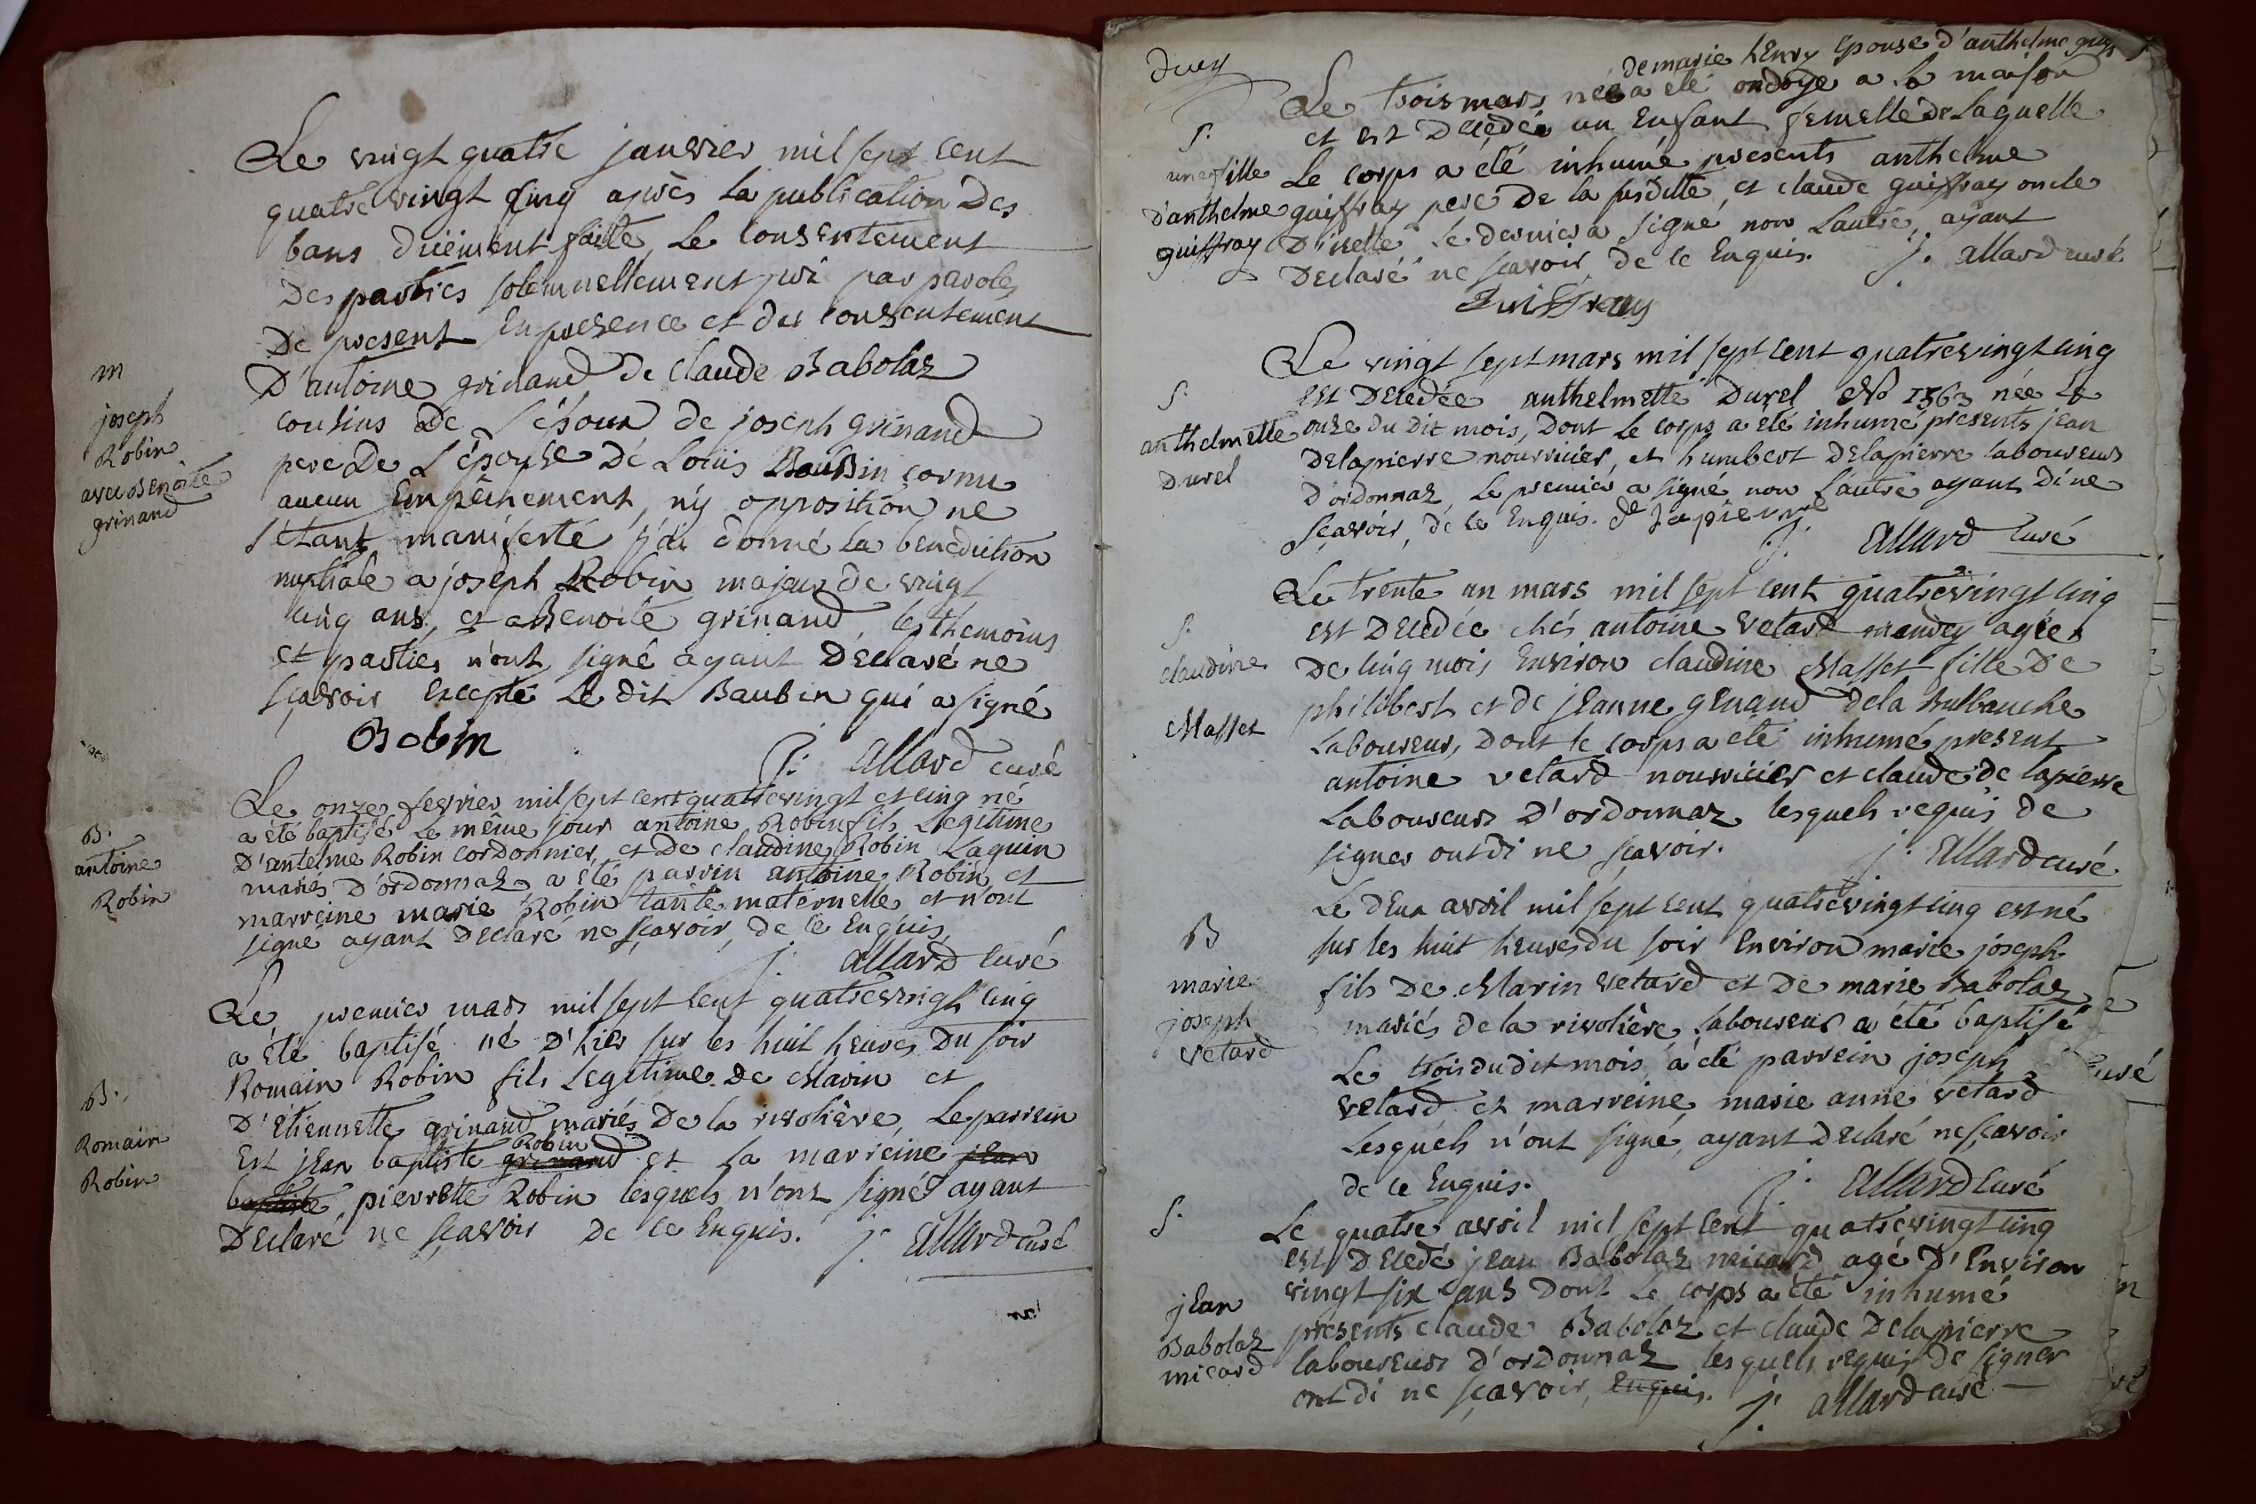 Le vingt quatre janvier mil sept cent
quatre vingt cinq après la publication des
bans düëment faite, le consentement
des parties solemnellement pri par paroles
de present en presence et du consentement
m
d'antoine grinand de claude Babolaz
joseph
cousins de l'époux de joseph grinand
Robin
pere de l'épouse de Louis Baubin
avec Benoite
aucun empêchement, ny opposition ne
grinand
s'étant manifesté j'ai donné la benediction
nuptiale a joseph Robin majeur de vingt
cinq ans, et a Benoite grinand, les themoins
et parties n'ont signé ayant declaré ne
sçavoir excepté le dit Baubin qui a signé
Bobin
j. allard curé
Le onze fevrier mil sept cent quatre vingt et cinq né
B.
a été baptisé le même jour antoine Robin fils legitime
antoine
d'antelme Robin cordonnier, et de claudine Robin Laquin
Robin
mariés d'ordonnaz a été parrin antoine Robin et
marreine marie Robin tante maternelle et n'ont
signé ayant declaré ne sçavoir, de ce enquis
j. allard curé
Le premier mars mil sept cent quatre vingt cinq
a été baptisé né d'hier sur les huit heures du soir
B.
Romain Robin fils legitime de Marin et
Romain
d'étiennette grinand mariés de la rivolière, le parrein
Robin
Robin
est jean baptiste grinand et la marreine jean
baptiste, pierrette Robin lesquels n'ont signé ayant
declaré ne sçavoir de ce enquis. j. allard curé
ducy
de marie henry epouse d'anthelme guif
Le trois mars née a été ondoyé a la maison
s.
et est decedée un enfant femelle de laquelle
une fille
le corps a été inhumé presents anthelme
d'anthelme
guiffray pere de la susditte, et claude guiffray oncle
guiffray
d'icelle le dernier a signé non l'autre, ayant
declaré ne sçavoir, de ce enquis. j. allard curé
Guiffray
Le vingt sept mars mil sept cent quatre vingt cinq
s.
est decedée anthelmette Durel No 1563 née le
anthelmette
onze du dit mois, dont le corps a été inhumé presents jean
Durel
delapierre nourricier, et humbert delapierre laboureurs
d'ordonnaz, le premier a signé non l'autre ayant di ne
sçavoir, de ce enquis. de lapierre
j. allard curé
Le trente un mars mil sept cent quatre vingt cinq
s.
est decedée chés antoine vetard mandey agée
claudine
de cinq mois environ claudine Masset fille de
Masset
philibert et de jeanne genand de la
laboureur, dont le corps a eté inhumé present
antoine vetard nourricier et claude de lapierre
laboureurs d'ordonnaz lesquels requis de
signer ont di ne sçavoir. j. allard curé
Le deux avril mil sept cent quatre vingt cinq est né
B
sur les huit heures du soir environ marie joseph
marie
fils de Marin vetard et de marie Babolaz
joseph
mariés de la rivolière, laboureur a été baptisé
vetard
le trois du dit mois, a été parrein joseph
vetard et marreine marie anne vetard
lesquels n'ont signé, ayant declaré ne sçavoir
de ce enquis. j. allard curé
s.
Le quatre avril mil sept cent quatre vingt cinq
est decedé jean Babolaz micard agé d'environ
jean
vingt six ans dont le corps a été inhumé
Babolaz
presents claude Babolaz et claude delapierre
micard
laboureurs d'ordonnaz lesquels requis de signer
ont di ne sçavoir, enquis. j. allard curé